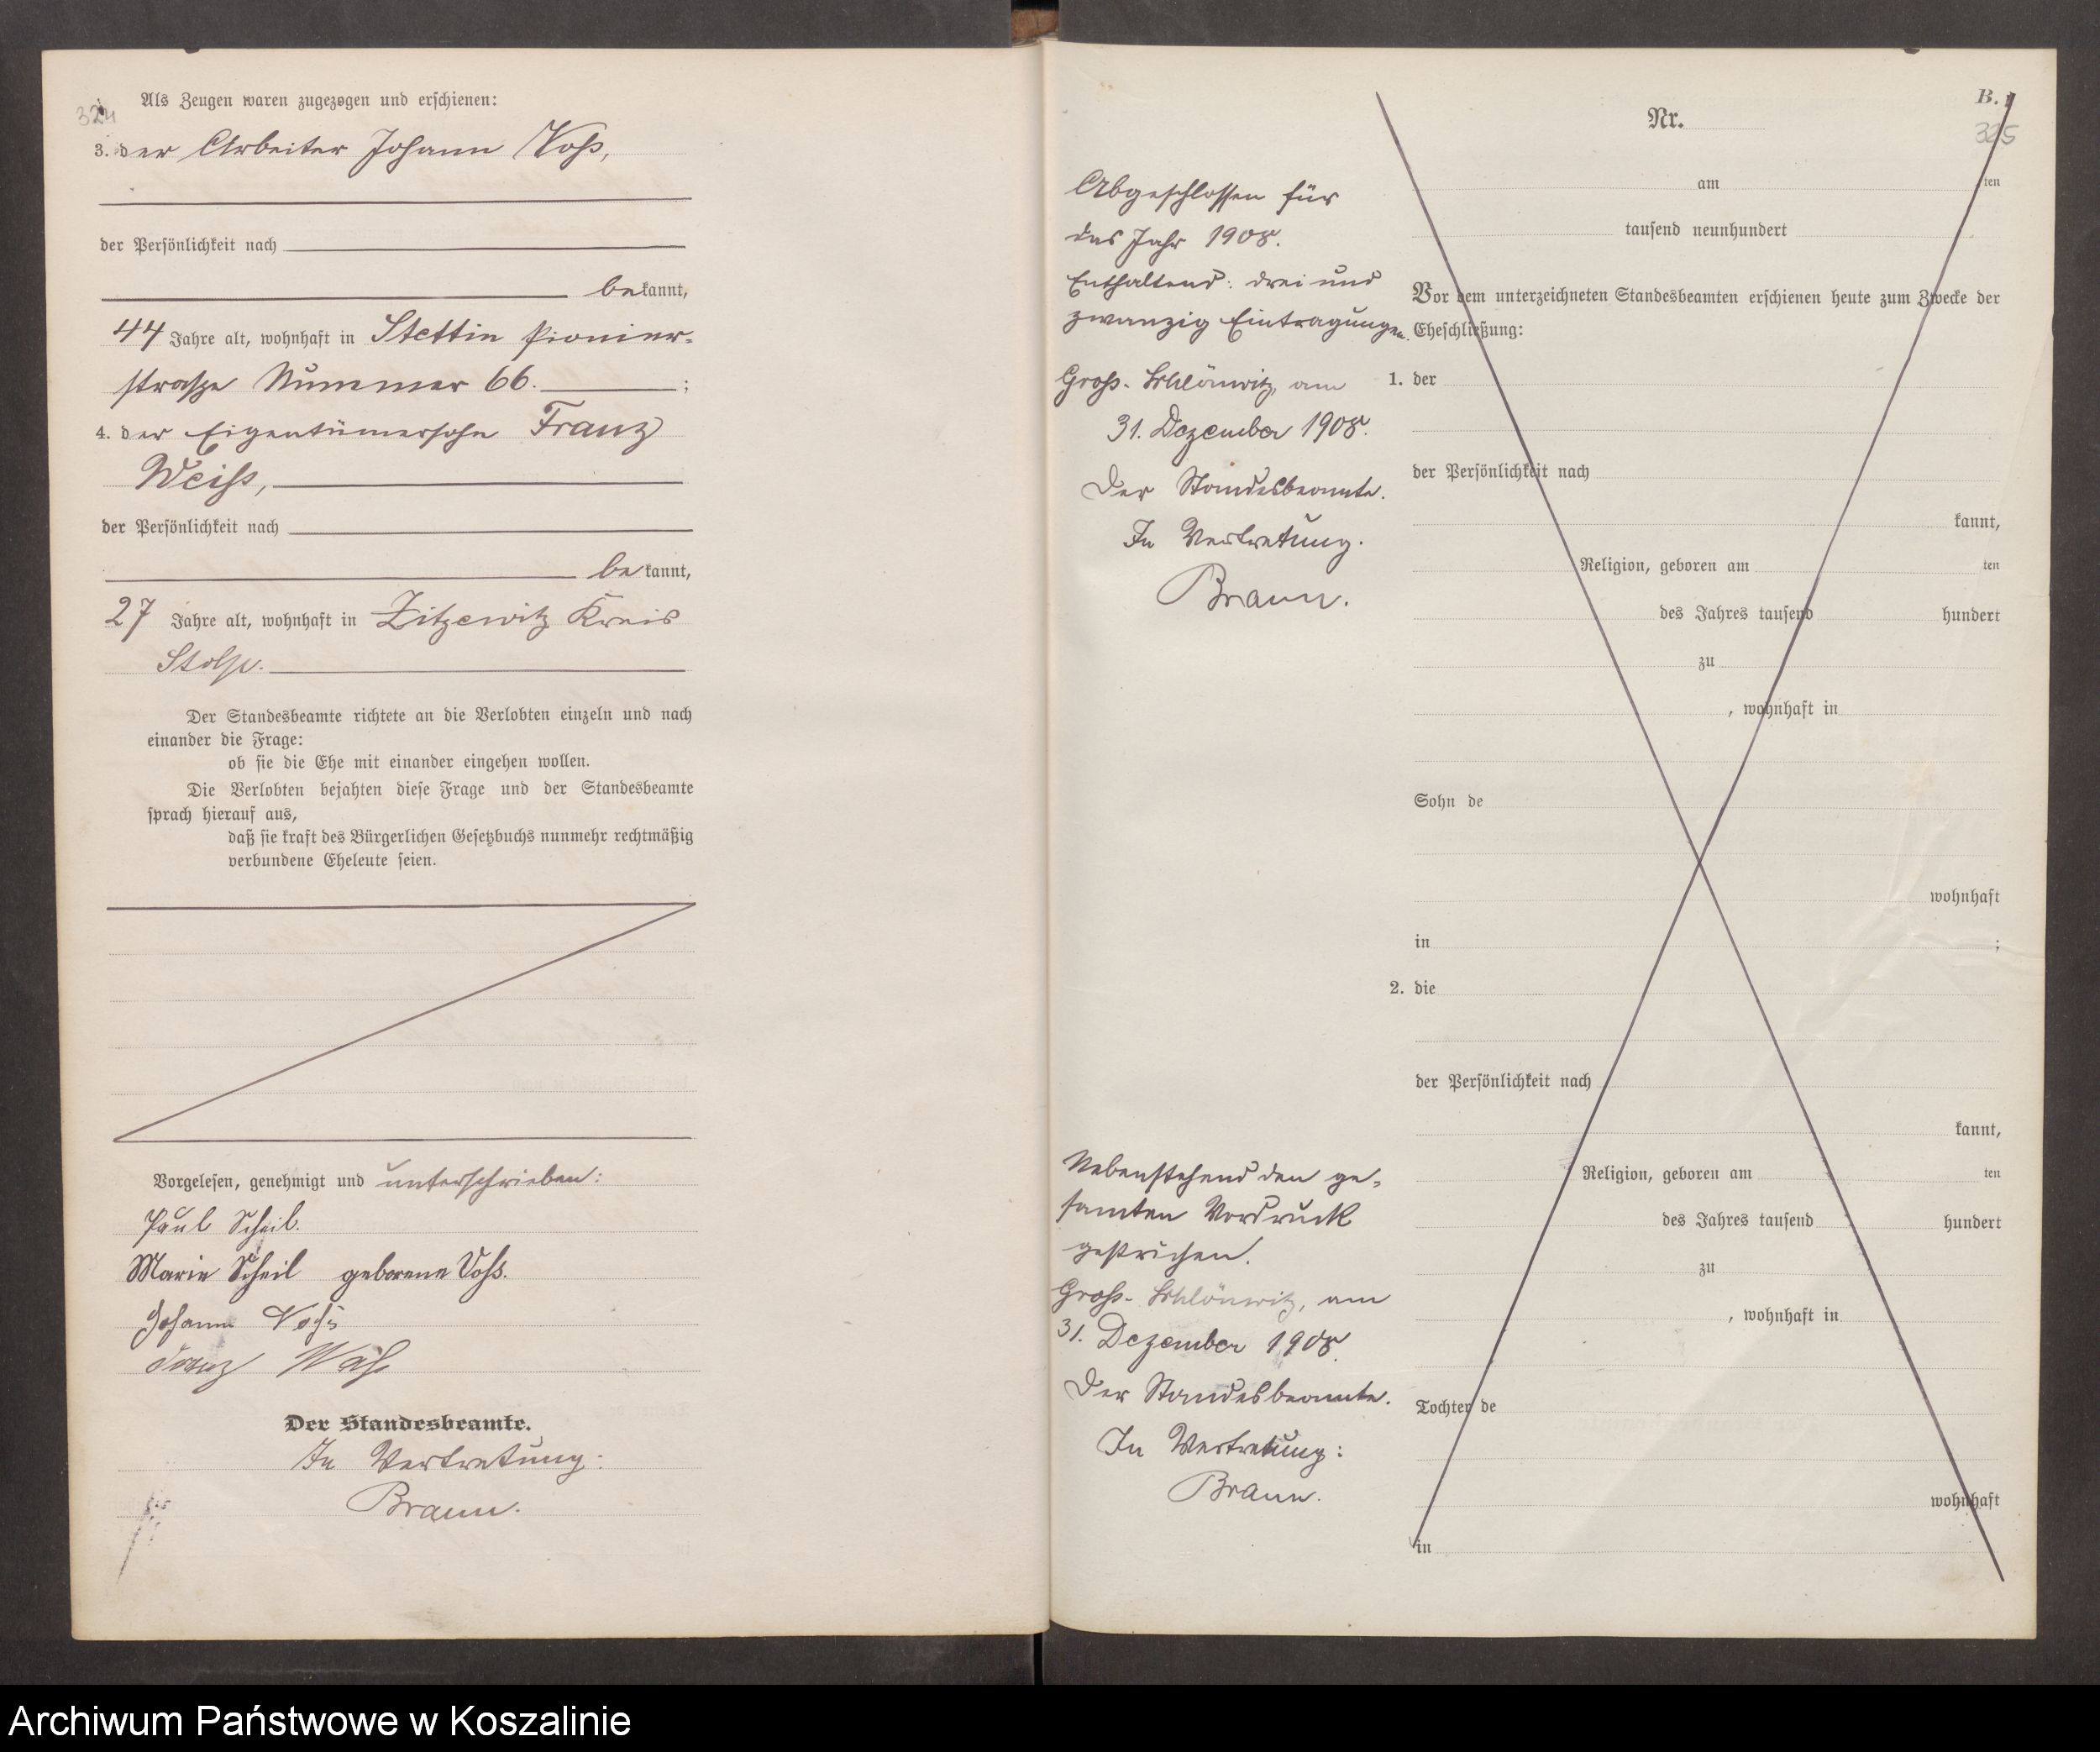 324
Als Zeugen waren zugezogen und erschienen:
3. der Arbeiter Johann Voß,
der Persönlichkeit nach
bekannt,
44 Jahre alt, wohnhaft in Stettin Pionier-
straße Nummer 66. ;
4. der Eigentümersohn Franz
Weiß,
der Persönlichkeit nach
bekannt,
27 Jahre alt, wohnhaft in Zitzewitz Kreis
Stolp.
Der Standesbeamte richtete an die Verlobten einzeln und nach
einander die Frage:
ob sie die Ehe mit einander eingehen wollen.
Die Verlobten bejahten diese Frage und der Standesbeamte
sprach hierauf aus,
daß sie kraft des Bürgerlichen Gesetzbuchs nunmehr rechtmäßig
verbundene Eheleute seien.
Vorgelesen, genehmigt und unterschrieben:
Paul Scheil.
Marie Scheil geborene Voß.
Johann Voß
Franz Weiß
Der Standesbeamte.
In Vertretung:
Braun.
B.
325
Abgeschlossen für
das Jahr 1908.
Enthaltend: drei und
zwanzig Eintragungen.
Groß-Schlönwitz, am
31. Dezember 1908.
Der Standesbeamte.
In Vertretung.
Braun.
Nebenstehend den ge-
samten Vordruck
gestrichen.
Groß-Schlönwitz, am
31. Dezember 1908.
Der Standesbeamte.
In Vertretung:
Braun.
Nr.
am ten
tausend neunhundert
Vor dem unterzeichneten Standesbeamten erschienen heute zum Zwecke der
Eheschließung:
1. der
der Persönlichkeit nach
kannt,
Religion, geboren am ten
des Jahres tausend hundert
zu
, wohnhaft in
Sohn de
wohnhaft
in ;
2. die
der Persönlichkeit nach
kannt,
Religion, geboren am ten
des Jahres tausend hundert
zu
, wohnhaft in
Tochter de
wohnhaft
in
Archiwum Państwowe w Koszalinie